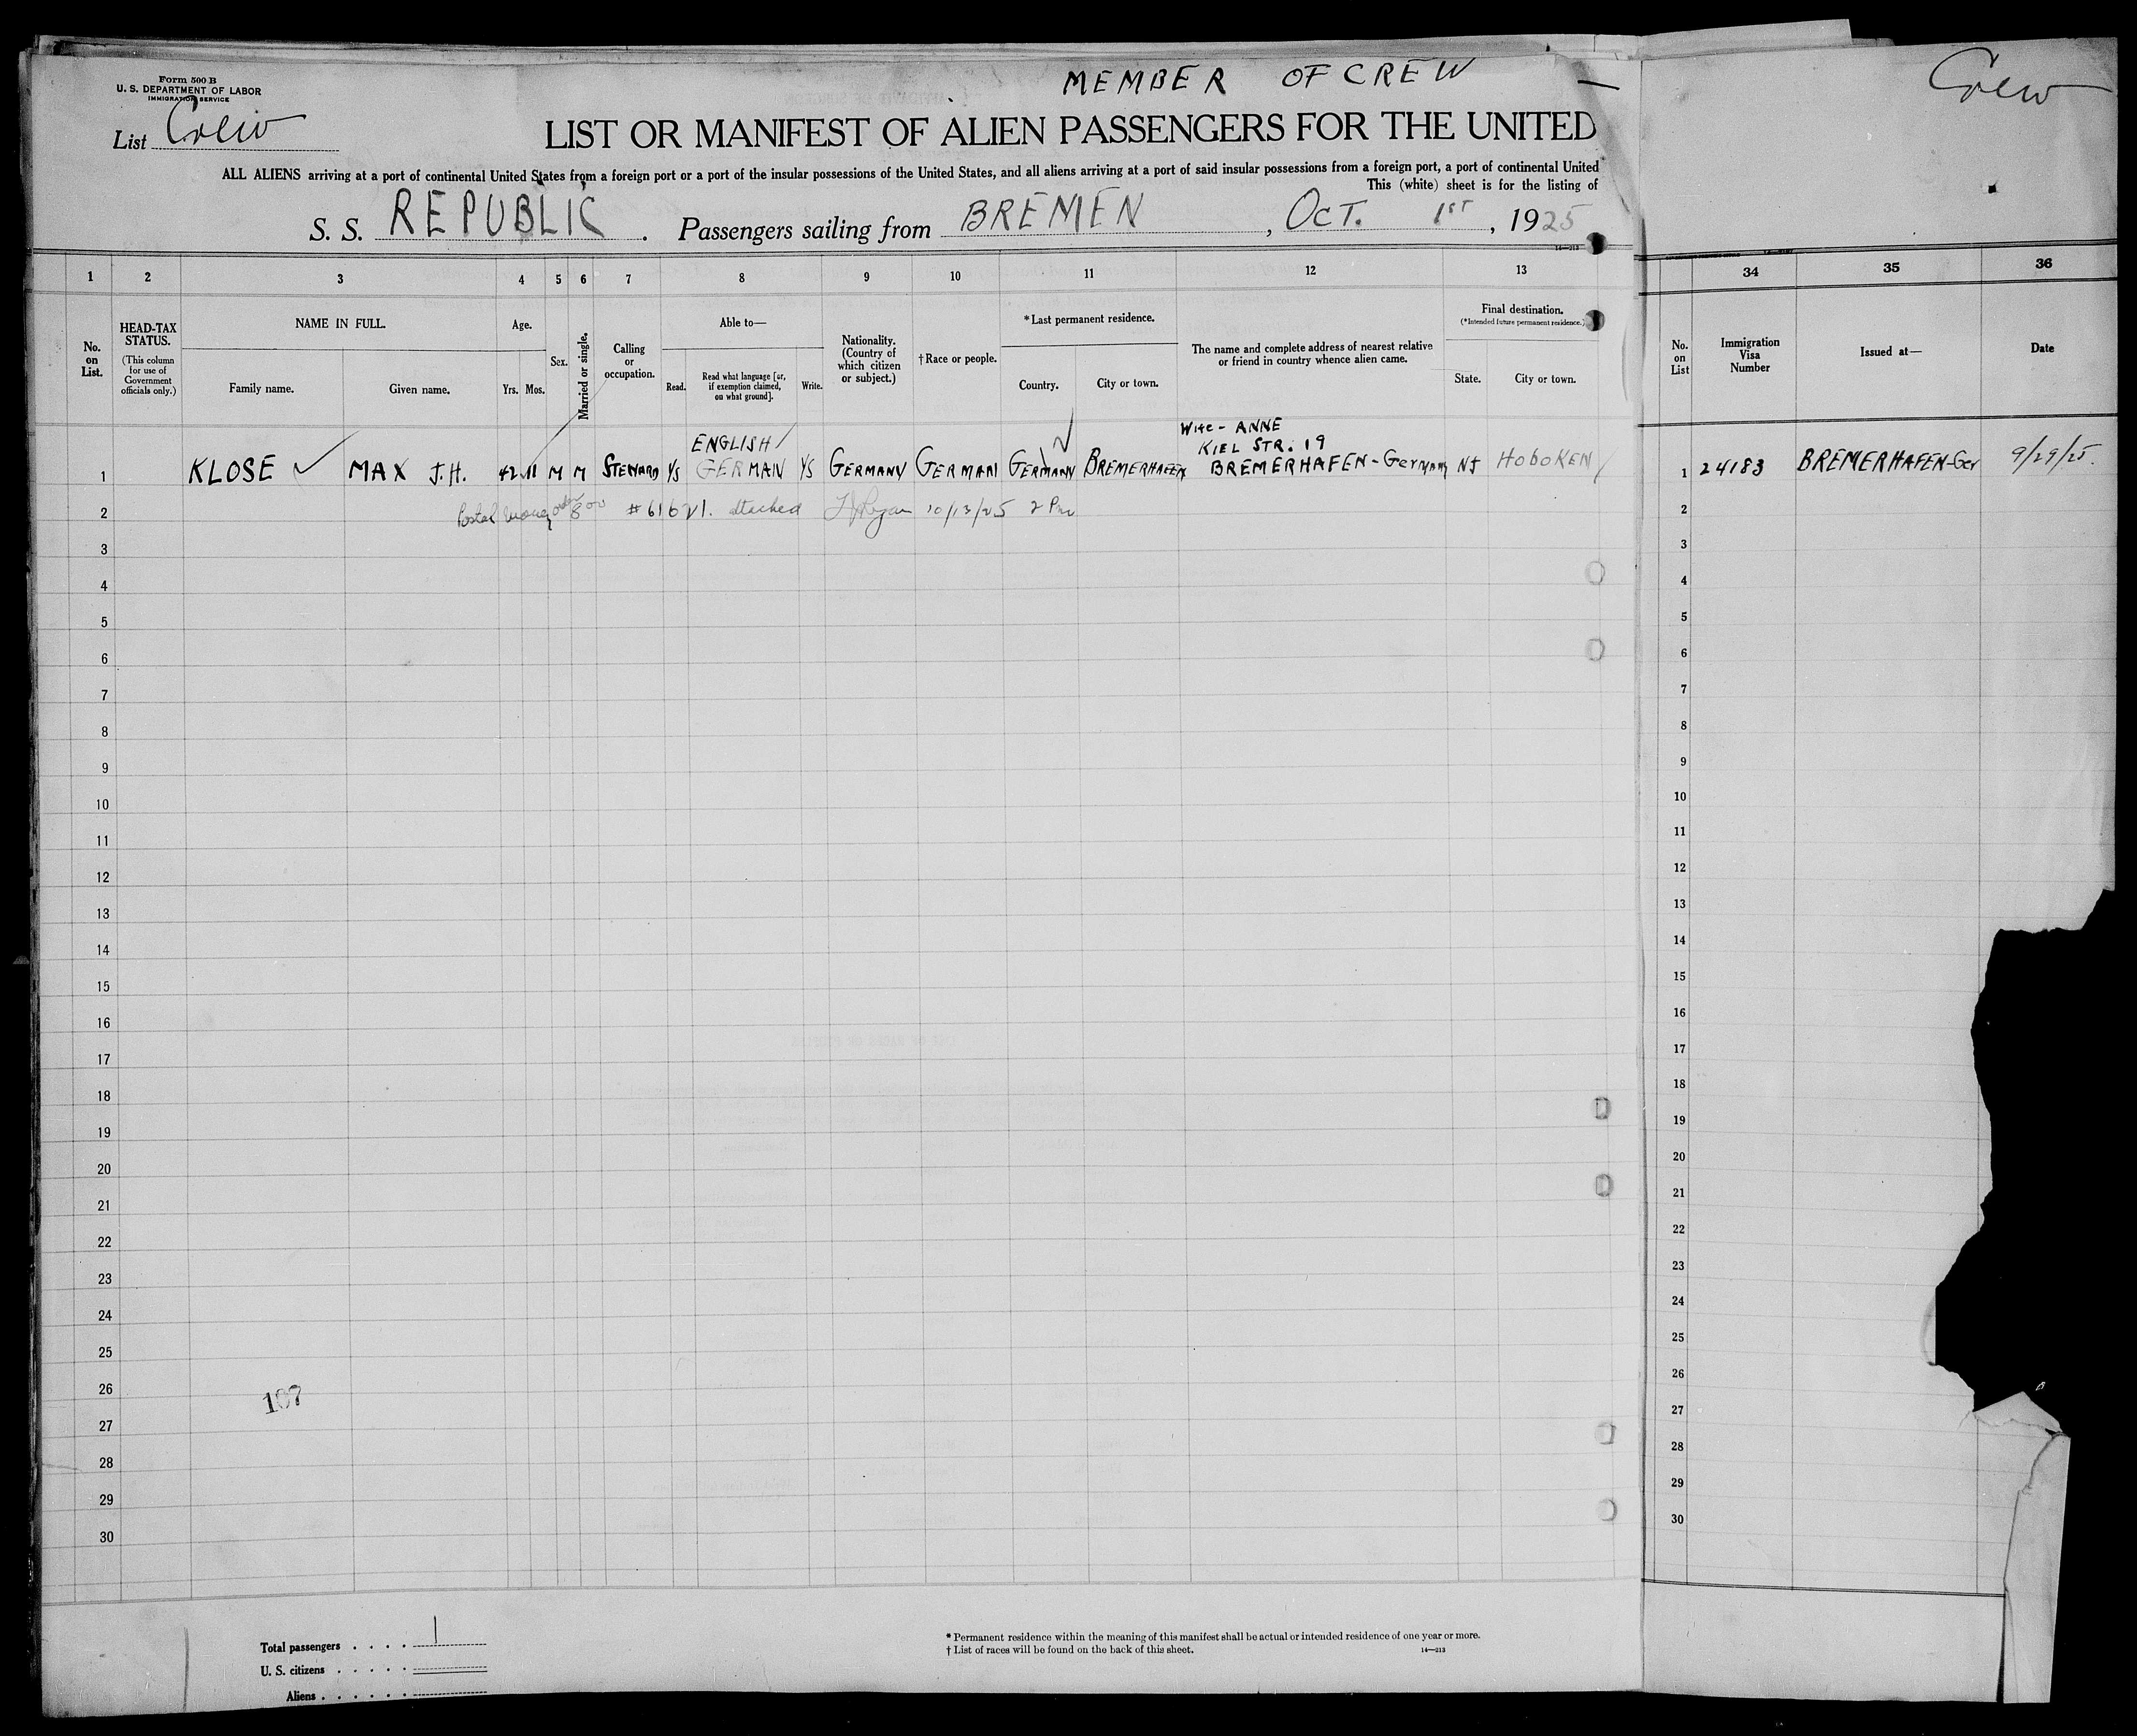 Form 500 B
U. S. DEPARTMENT OF LABOR
IMMIGRATION SERVICE
List Crew
MEMBER OF CREW
Crew
LIST OR MANIFEST OF ALIEN PASSENGERS FOR THE UNITED
ALL ALIENS arriving at a port of continental United States from a foreign port or a port of the insular possessions of the United States, and all aliens arriving at a port of said insular possessions from a foreign port, a port of continental United
This (white) sheet is for the listing of
S. S. REPUBLIC. Passengers sailing from BREMEN, OCT. 1ST, 1925
14—213
1 2 3 4 5 6 7 8 9 10 11 12 13 34 35 36
No. on List.
HEAD-TAX STATUS.
(This column for use of Government officials only.)
NAME IN FULL.
Family name. Given name.
Age.
Yrs. Mos.
Sex.
Married or single.
Calling or occupation.
Able to—
Read. Read what language [or, if exemption claimed, on what ground]. Write.
Nationality. (Country of which citizen or subject.)
†Race or people.
*Last permanent residence.
Country. City or town.
The name and complete address of nearest relative or friend in country whence alien came.
Final destination.
(*Intended future permanent residence.)
State. City or town.
No. on List
Immigration Visa Number
Issued at—
Date
ENGLISH/
Wife - ANNE
KIEL STR. 19
1 KLOSE MAX J.H. 42 11 M M STEWARD YS GERMAN YS GERMANY GERMAN GERMANY BREMERHAFEN BREMERHAFEN-Germany NJ HOBOKEN 1 24183 BREMERHAFEN-Ger 9/29/25.
2 Postal money order 8 00 #61621. attached Ryan 10/13/25 2 Pm 2
3 3
4 4
5 5
6 6
7 7
8 8
9 9
10 10
11 11
12 12
13 13
14 14
15 15
16 16
17 17
18 18
19 19
20 20
21 21
22 22
23 23
24 24
25 25
26 26
107
27 27
28 28
29 29
30 30
Total passengers . . . . 1
U. S. citizens . . . . .
Aliens . . . . . .
* Permanent residence within the meaning of this manifest shall be actual or intended residence of one year or more.
† List of races will be found on the back of this sheet.
14—213